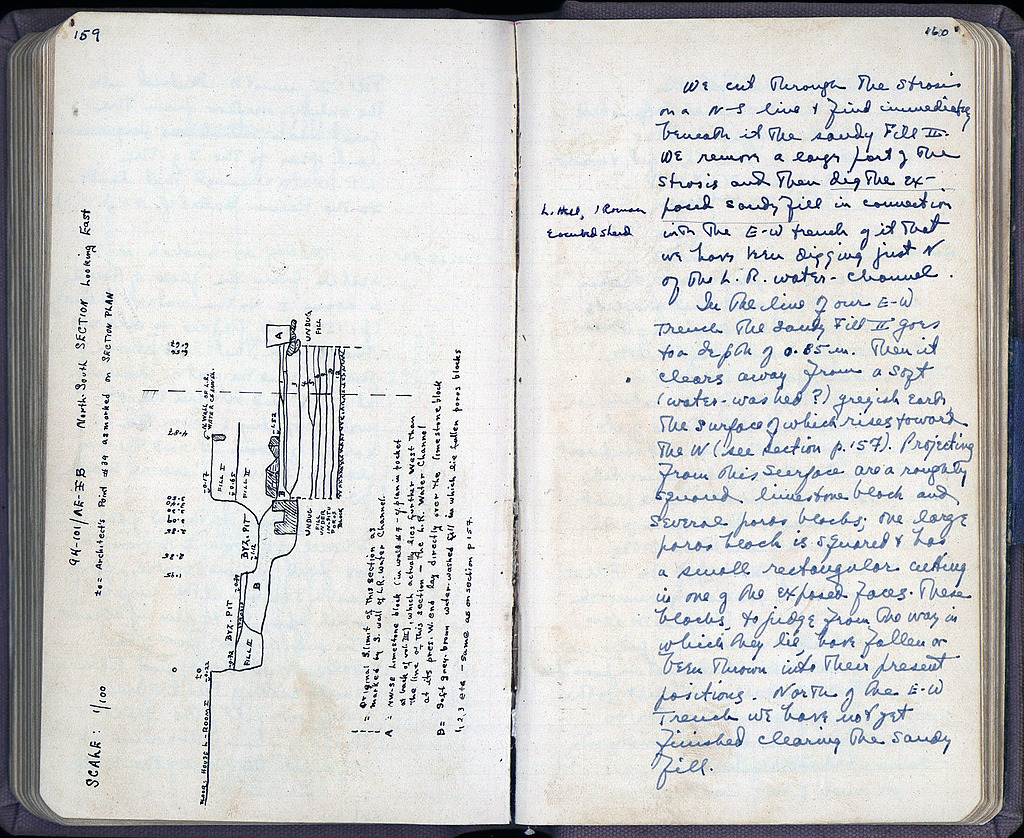 159
94-101/AE-EB North-South SECTION Looking East
±0 = Architect's Point #39 as marked on SECTION PLAN
SCALE: 1/100
FLOOR: HOUSE L-ROOM
±0
0
BYZ. PIT
FILL II
B
BYZ. PIT
FILL I
FILL II
N WALL OF L.R. WATER CHANNEL
A
UNDUG FILL
B
UNDUG FILL UNDER
= Original S. limit of this section as
marked by S. wall of L.R. Water Channel.
A = NW-SE limestone block (in wall #7 - of plan in pocket
at back of vol. III), which actually lies further West than
the line of this section - the L.R. Water Channel
at its pres. W. end lay directly over the limestone block
B = Soft grey-brown water-washed fill in which lie fallen poros blocks
1, 2, 3 etc - same as on section p 157.
160
We cut through the strosis
on a N-S line & find immediately
beneath it the sandy Fill II.
We remove a large part of the
strosis and then dig the ex-
posed sandy fill in connection
L. Hell, 1 Roman
encrusted sherd
with the E-W trench of it that
we have been digging just N
of the L.R. water-channel.
In the line of our E-W
Trench the sandy Fill II goes
to a depth of 0.85 m. Then it
clears away from a soft
(water-washed?) greyish earth
the surface of which rises toward
the W (see section p. 157). Projecting
from this surface are a roughly
squared limestone block and
several poros blocks; one large
poros block is squared & has
a small rectangular cutting
in one of the exposed faces. These
blocks, to judge from the way in
which they lie, have fallen or
been thrown into their present
positions. North of the E-W
Trench we have not yet
finished clearing the sandy
fill.